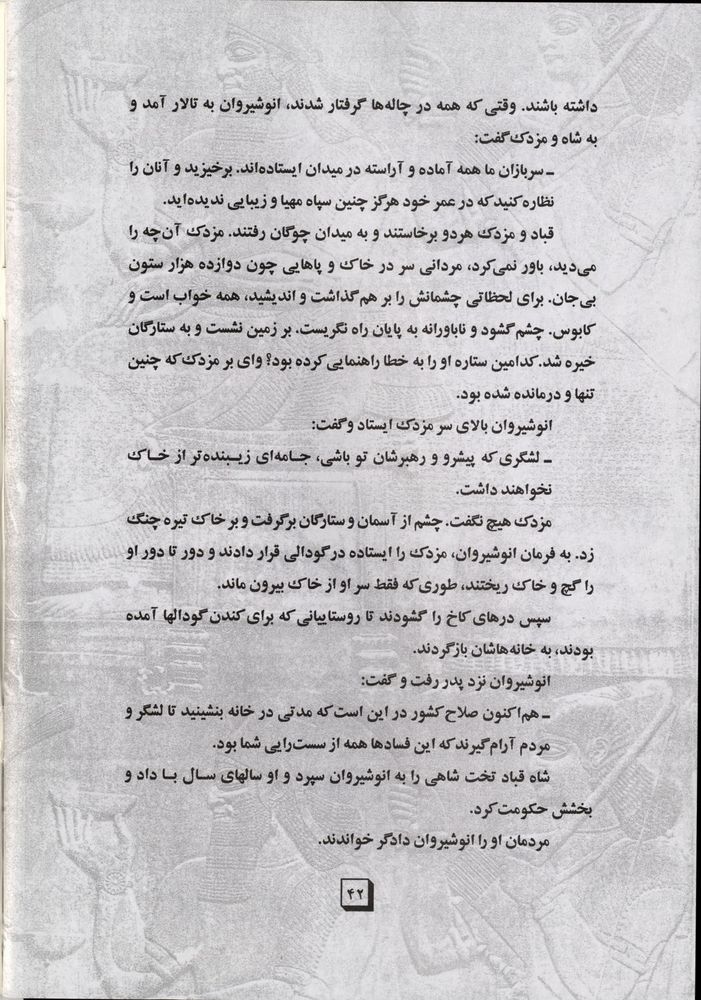 داشته باشند. وقتی که همه در چاله‌ها گرفتار شدند، انوشیروان به تالار آمد و
به شاه و مزدک گفت:
ـ سربازان ما همه آماده و آراسته در میدان ایستاده‌اند. برخیزید و آنان را
نظاره کنید که در عمر خود هرگز چنین سپاه مهیا و زیبایی ندیده‌اید.
قباد و مزدک هردو برخاستند و به میدان چوگان رفتند. مزدک آن‌چه را
می‌دید، باور نمی‌کرد، مردانی سر در خاک و پاهایی چون دوازده هزار ستون
بی‌جان. برای لحظاتی چشمانش را بر هم گذاشت و اندیشید، همه خواب است و
کابوس. چشم گشود و ناباورانه به پایان راه نگریست. بر زمین نشست و به ستارگان
خیره شد. کدامین ستاره او را به خطا راهنمایی کرده بود؟ وای بر مزدک که چنین
تنها و درمانده شده بود.
انوشیروان بالای سر مزدک ایستاد و گفت:
ـ لشگری که پیشرو و رهبرشان تو باشی، جـامه‌ای زیـبنده‌تر از خـاک
نخواهند داشت.
مزدک هیچ نگفت. چشم از آسمان و ستارگان برگرفت و بر خاک تیره چنگ
زد. به فرمان انوشیروان، مزدک را ایستاده در گودالی قرار دادند و دور تا دور او
را گچ و خاک ریختند، طوری که فقط سر او از خاک بیرون ماند.
سپس درهای کاخ را گشودند تا روستاییانی که برای کندن گودالها آمده
بودند، به خانه‌هاشان بازگردند.
انوشیروان نزد پدر رفت و گفت:
ـ هم‌اکنون صلاح کشور در این است که مدتی در خانه بنشینید تا لشگر و
مردم آرام گیرند که این فسادها همه از سست‌رایی شما بود.
شاه قباد تخت شاهی را به انوشیروان سپرد و او سالهای سـال بـا داد و
بخشش حکومت کرد.
مردمان او را انوشیروان دادگر خواندند.
۴۲